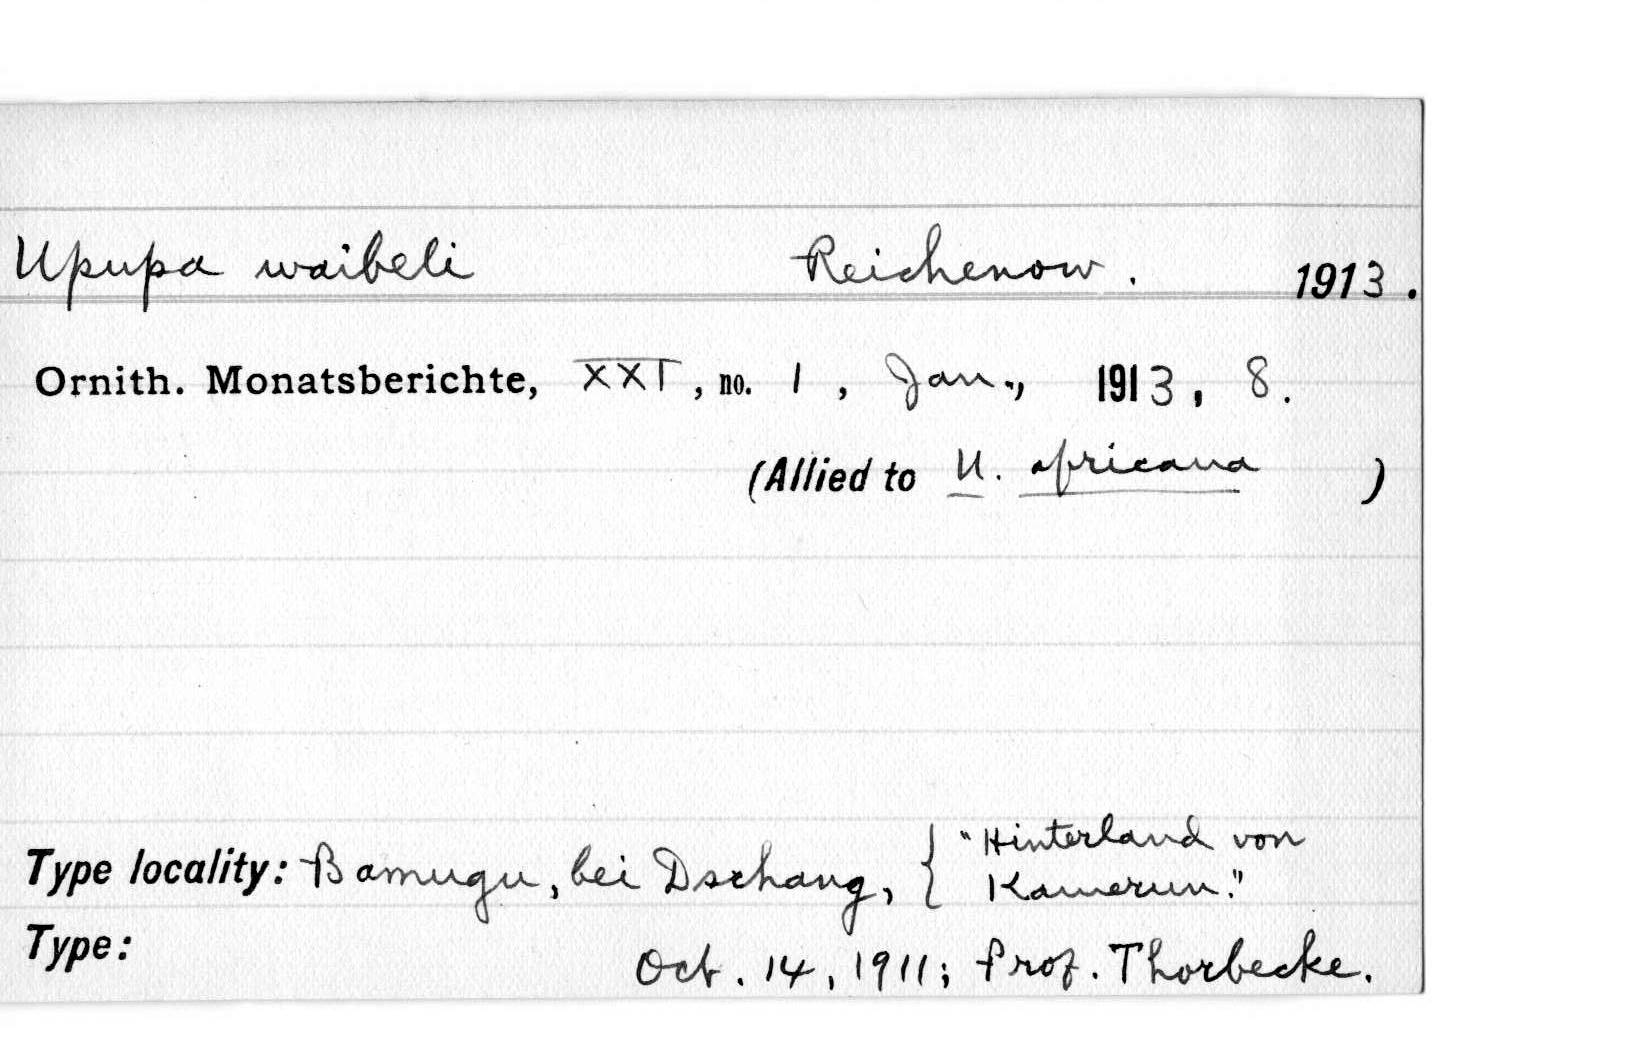 Upupa waibeli Reichenow. 1913.
Ornith. Monatsberichte, XXI, no. 1, Jan., 1913, 8.
(Allied to U. africana )
Type locality: Bamugu, bei Dschang, { "Hinterland von
Kamerun."
Type: Oct. 14, 1911; Prof. Thorbecke.